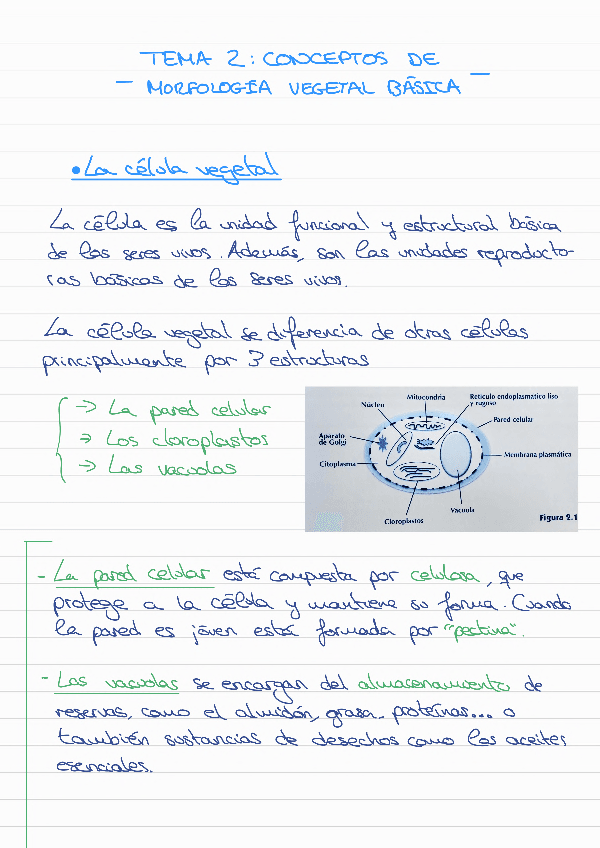 TEMA 2: CONCEPTOS DE
- MORFOLOGÍA VEGETAL BÁSICA -
• La célula vegetal
La célula es la unidad funcional y estructural básica
de los seres vivos. Además, son las unidades reproducto-
ras básicas de los seres vivos.
La célula vegetal se diferencia de otras células
principalmente por 3 estructuras
→ La pared celular
→ Los cloroplastos
→ Las vacuolas
Mitocondria
Retículo endoplasmático liso
y rugoso
Núcleo
Pared celular
Aparato
de Golgi
Membrana plasmática
Citoplasma
Vacuola
Cloroplastos
Figura 2.1
- La pared celular está compuesta por celulosa, que
protege a la célula y mantiene su forma. Cuando
la pared es jóven está formada por "pectina".
- Las vacuolas se encargan del almacenamiento de
reservas, como el almidón, grasa, proteínas... o
también sustancias de desechos como los aceites
esenciales.